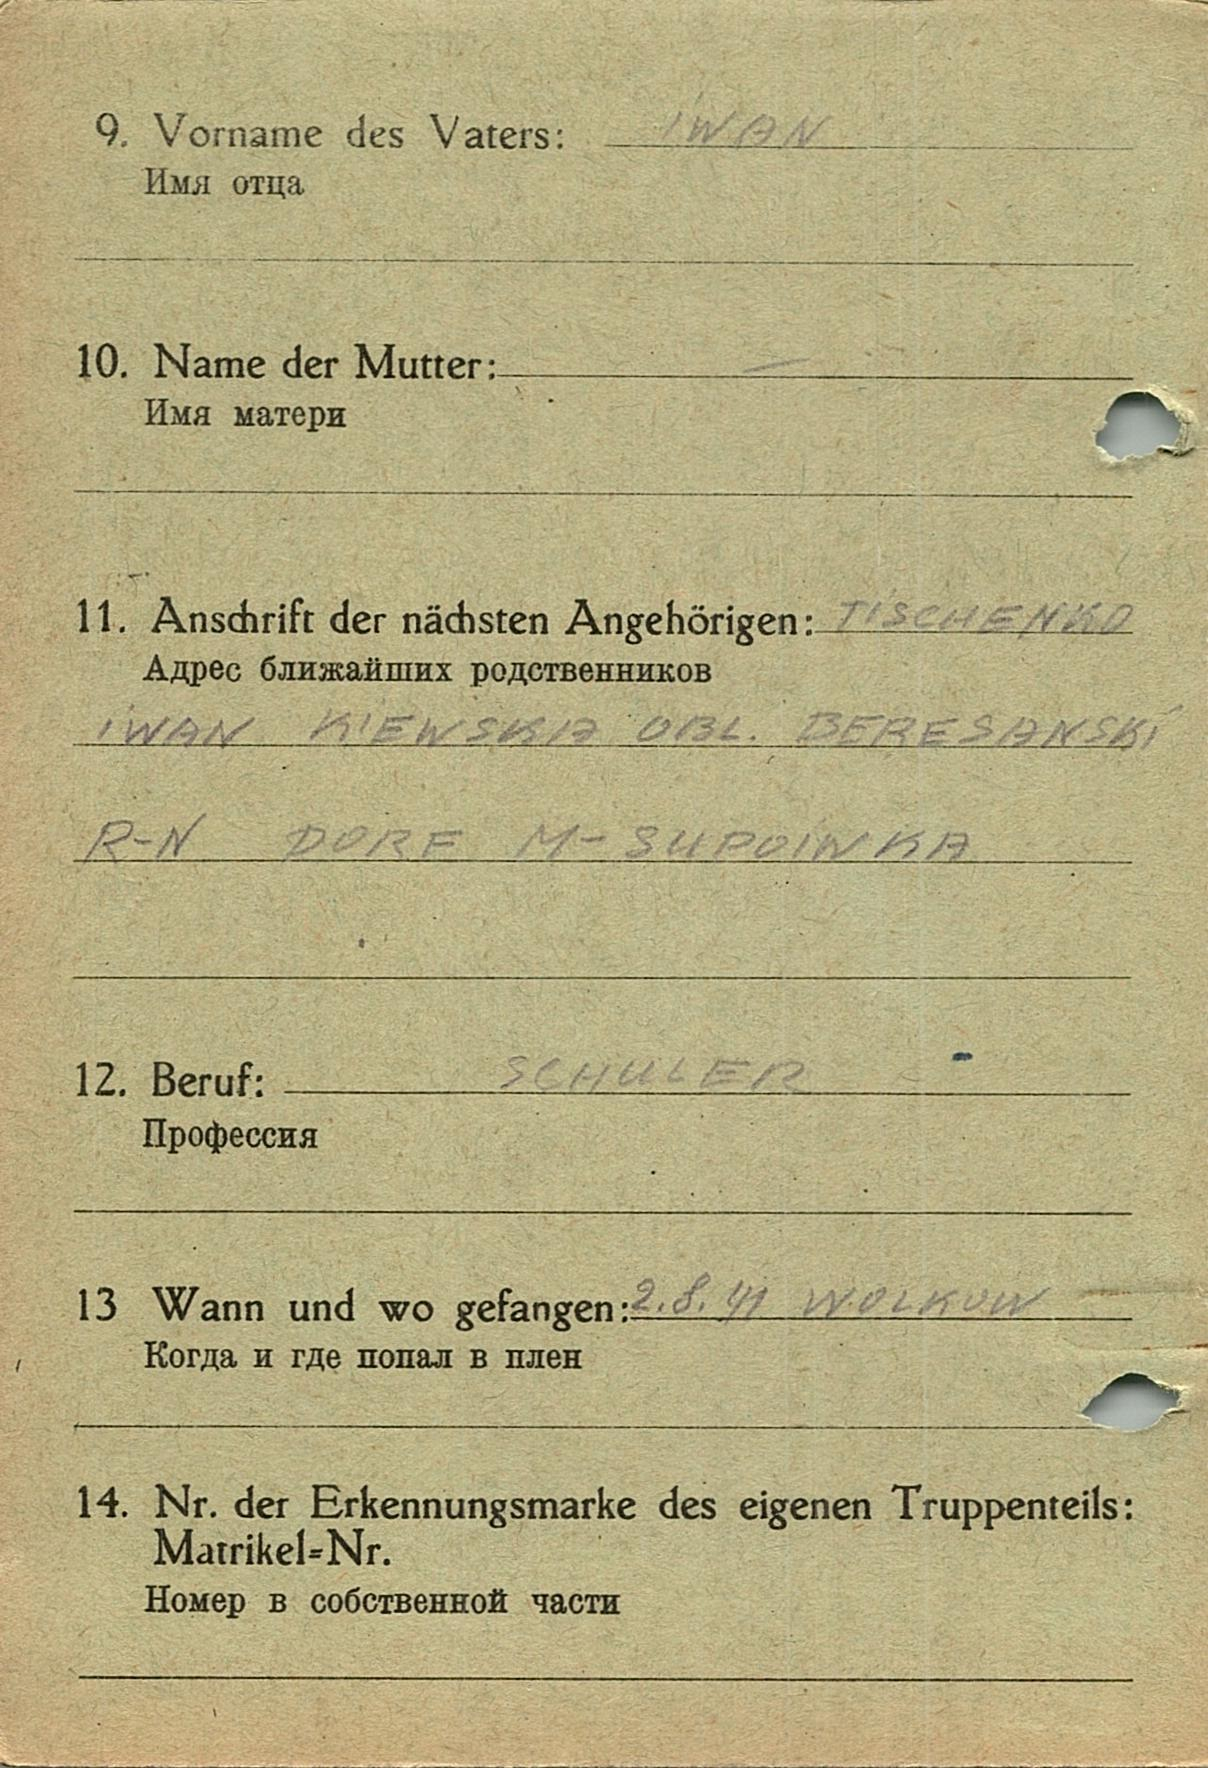 9. Vorname des Vaters: IWAN
Имя отца
10. Name der Mutter: —
Имя матери
11. Anschrift der nächsten Angehörigen: TISCHENKO
Адрес ближайших родственников
IWAN KIEWSKA OBL. BERESANSKI
R-N DORF M-SUPOIWKA
12. Beruf: SCHULER
Профессия
13 Wann und wo gefangen: 2.8.41 WOLKOW
Когда и где попал в плен
14. Nr. der Erkennungsmarke des eigenen Truppenteils:
Matrikel-Nr.
Номер в собственной части